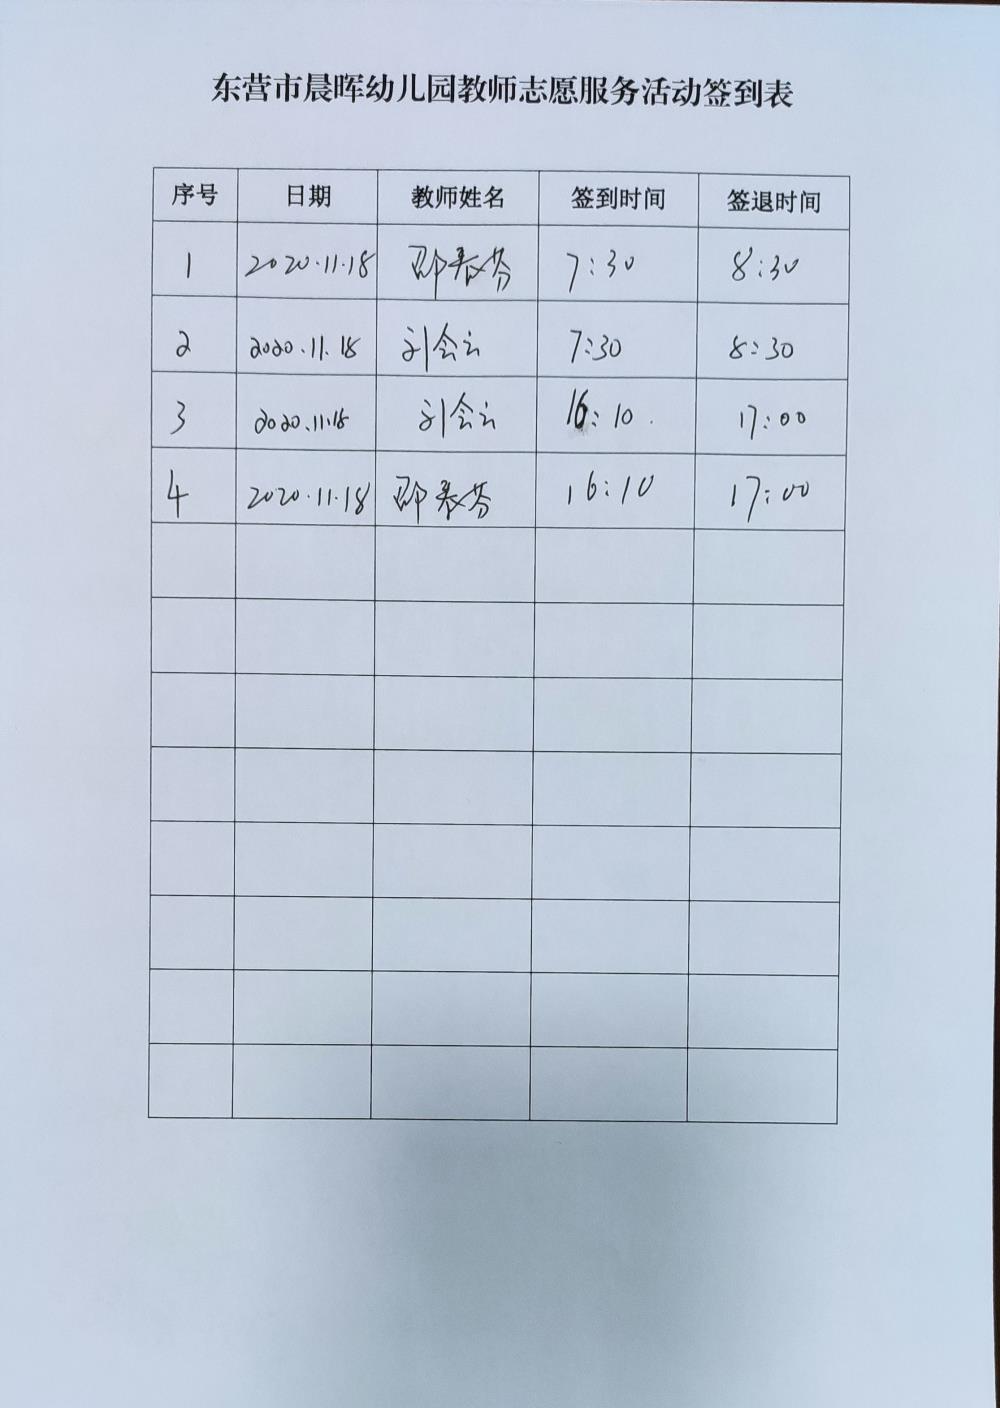 东营市晨晖幼儿园教师志愿服务活动签到表
序号 日期 教师姓名 签到时间 签退时间
1 2020.11.18 邵春芬 7:30 8:30
2 2020.11.18 刘会云 7:30 8:30
3 2020.11.18 刘会云 16:10. 17:00
4 2020.11.18 邵春芬 16:10 17:00